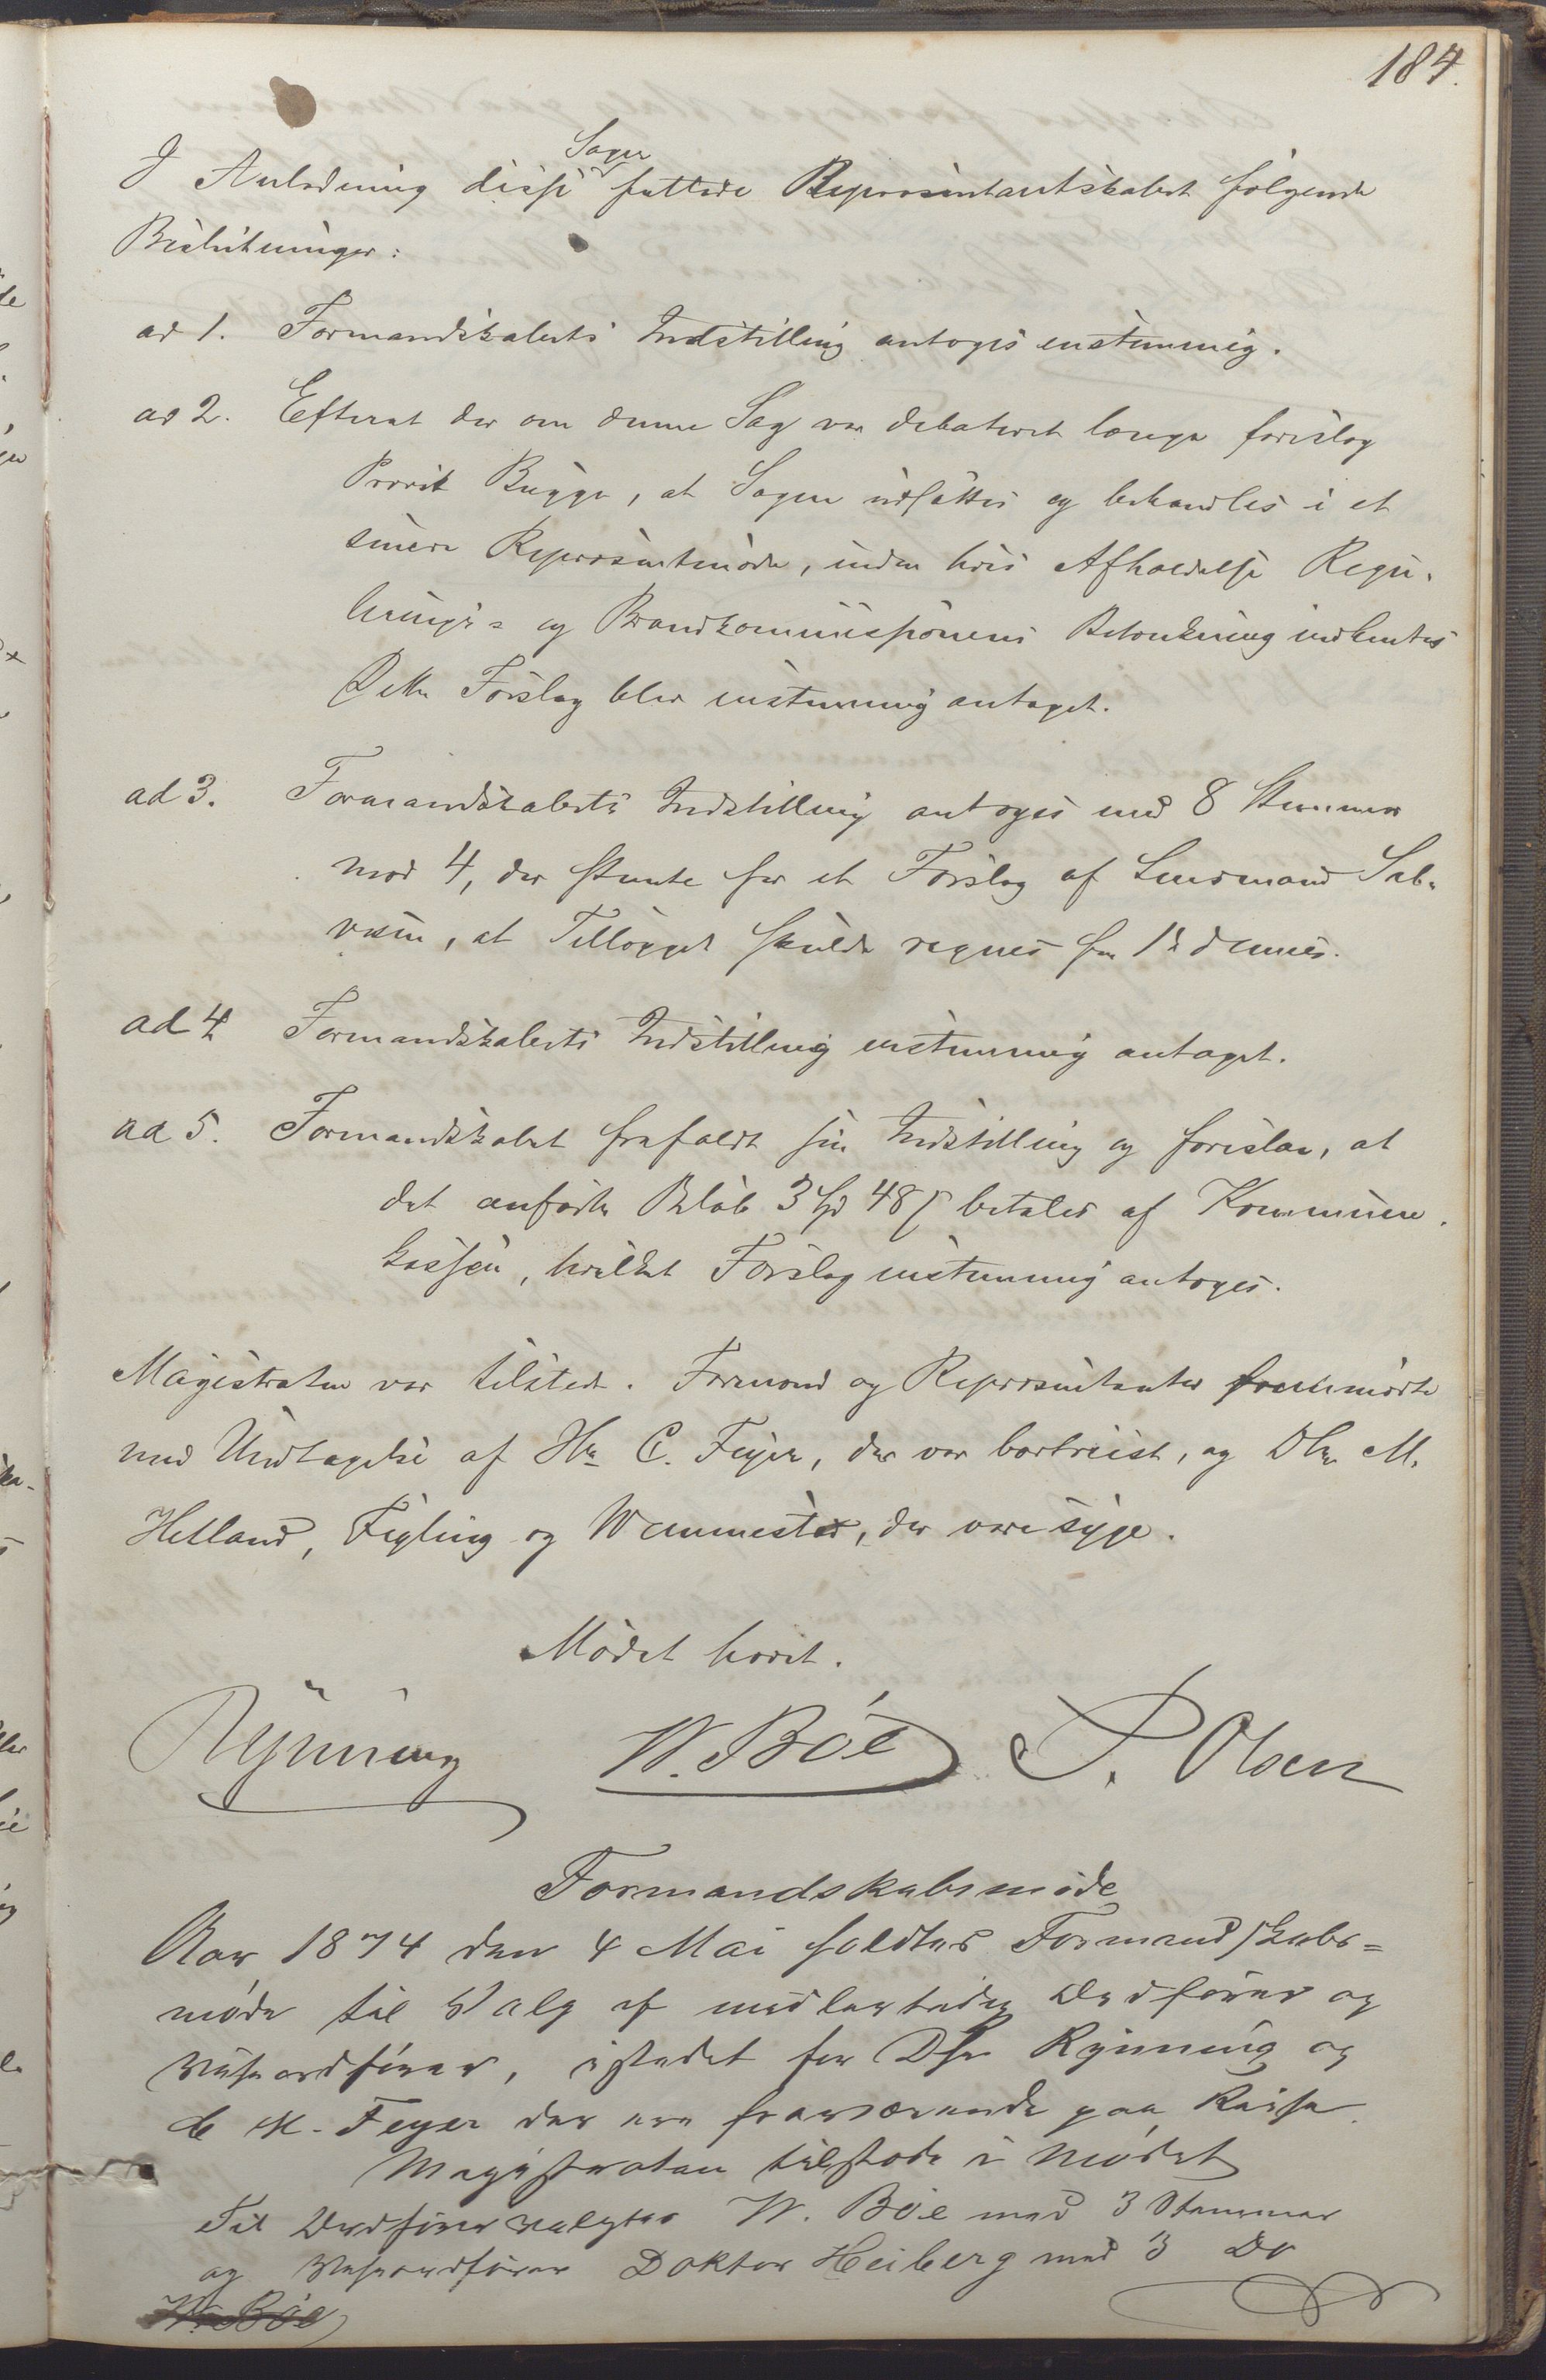 184.
I Anledning disse Sager fattede Repræsentantskabet følgende
Beslutninger:
ad 1. Formandskabets Indstilling antoges enstemmig.
ad 2. Efterat der om denne Sag var debateret længe foreslog
Provst Bugge, at Sagen udsættes og behandles i et
senere Repræsentmøde, inden hvis Afholdelse Regu-
lerings- og Brandkommissionens Betænkning indhentes
Dette Forslag blev enstemmig antaget.
ad 3. Formandskabets Indstilling antoges med 8 Stemmer
mod 4, der stemte for et Forslag af Lensmand Sal-
vesen, at Tillægget skulde regnes fra 1ste dennes.
ad 4 Formandskabets Indstilling enstemmig antaget.
ad 5. Formandskabet frafaldt sin Indstilling og foreslog, at
det anførte Beløb 3 Spd 48 ß betales af Kommune-
kassen, hvilket Forslag enstemmig antoges.
Magistraten var tilstede. Formænd og Repræsentanter fremmødte
med Undtagelse af Hr C. Fejer, der var bortreist, og DHr M.
Helland, Figling og Wennested, der vare syge.
Mødet hævet.
Rynning W. Böe P. Olsen
Formandskabsmøde
Aar 1874 den 4 Mai holdtes Formandskabs=
møde til Valg af midlertidig Ordfører og
Viseordfører, istedet for DHr Rynning og
C M. Feyer der ere fraværende paa Reise
Magistraten tilstede i Mødet
Til Ordfører valgtes W. Böe med 3 Stemmer
og Viseordfører Doktor Heiberg med 3 Do
W. Böe